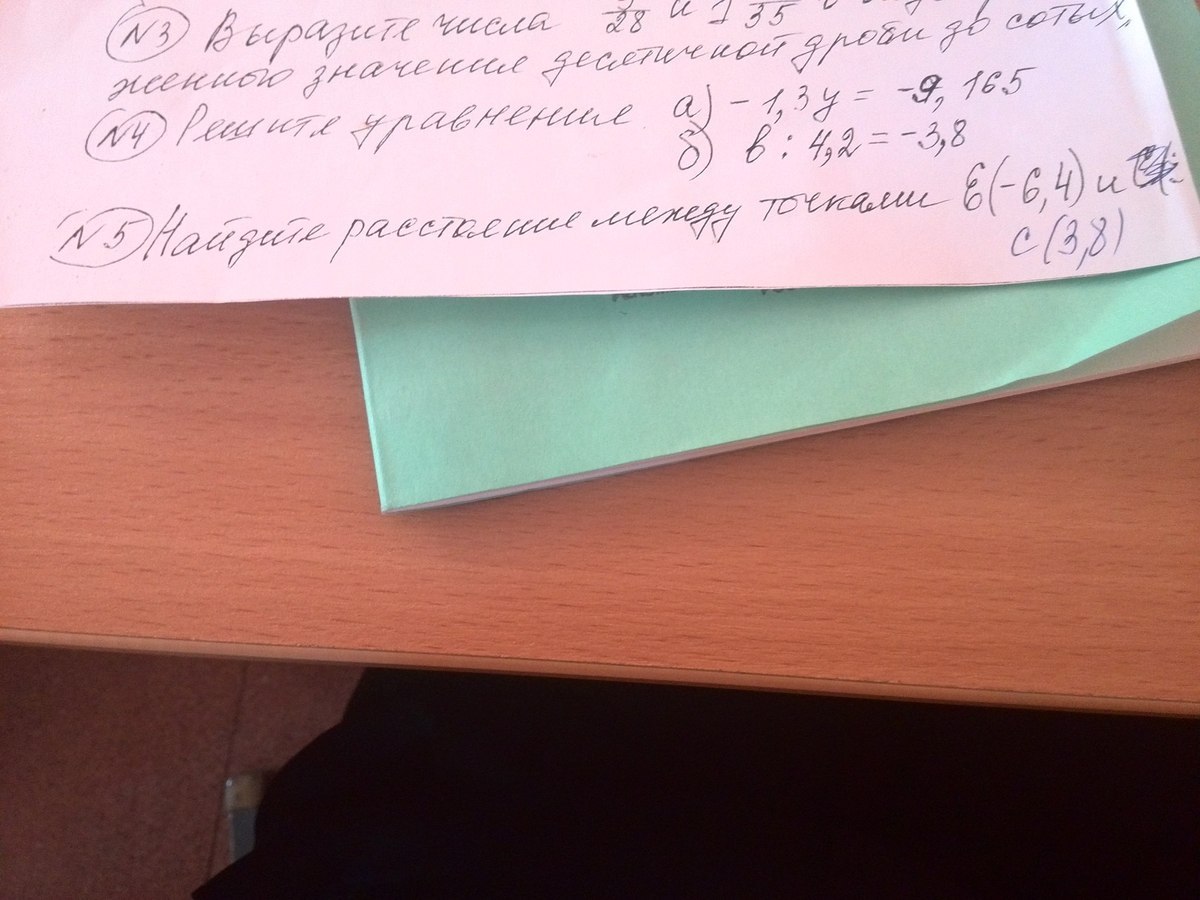 N3 Выразите числа /28 и 1 /35
женного значения десятичной дроби до сотых.
N4 Решите уравнения а) -1,3y = -9,165
б) в : 4,2 = -3,8
N5 Найдите расстояние между точками E(-6,4) и
C(3,8)